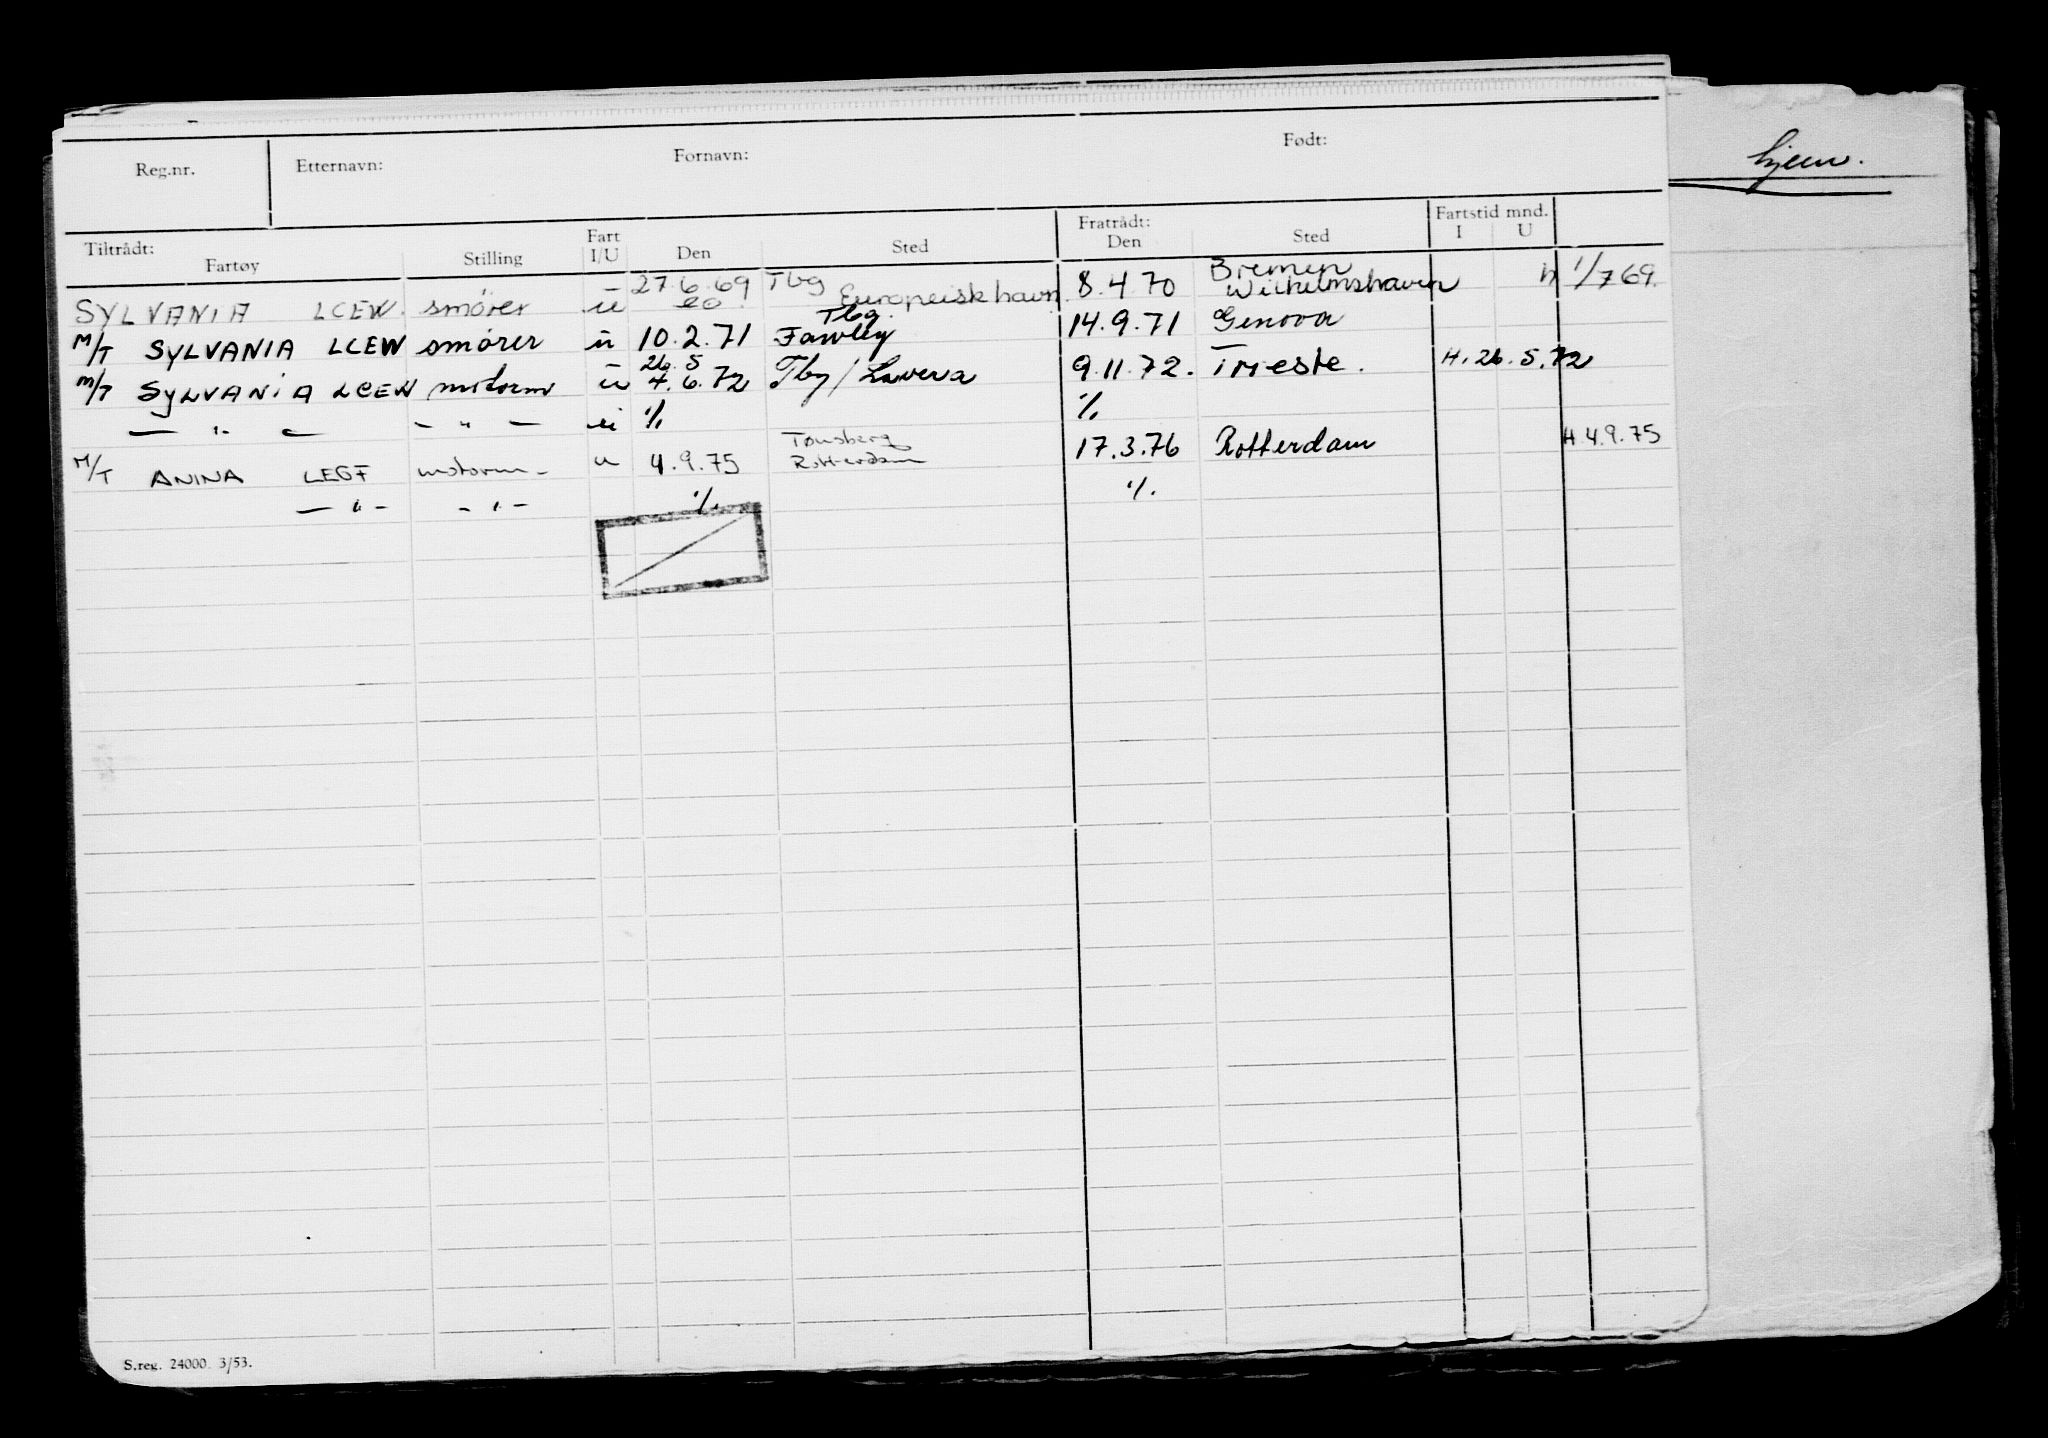 hjem.
Reg.nr. Etternavn: Fornavn: Født:
Tiltrådt: Fratrådt: Fartstid mnd.
Fartøy Stilling Fart I/U Den Sted Den Sted I U
27.6.69 Tbg Bremen
SYLVANIA LCEW. smører u Europeisk havn. 8.4.70 Wilhelmshaven h 1/7 69.
Tbg.
M/T SYLVANIA LCEW smører u 10.2.71 Fawley 14.9.71 Genova
26.5
M/T SYLVANIA LCEW motorm u 4.6.72 Tbg / Lavera 9.11.72. Trieste. H. 26.5.72
— " — — " — u % %
Tønsberg
M/T ANINA LEGF motorm - u 4.9.75 Rotterdam 17.3.76 Rotterdam H.4.9.75
— " — — " — % %
S.reg. 24000. 3/53.